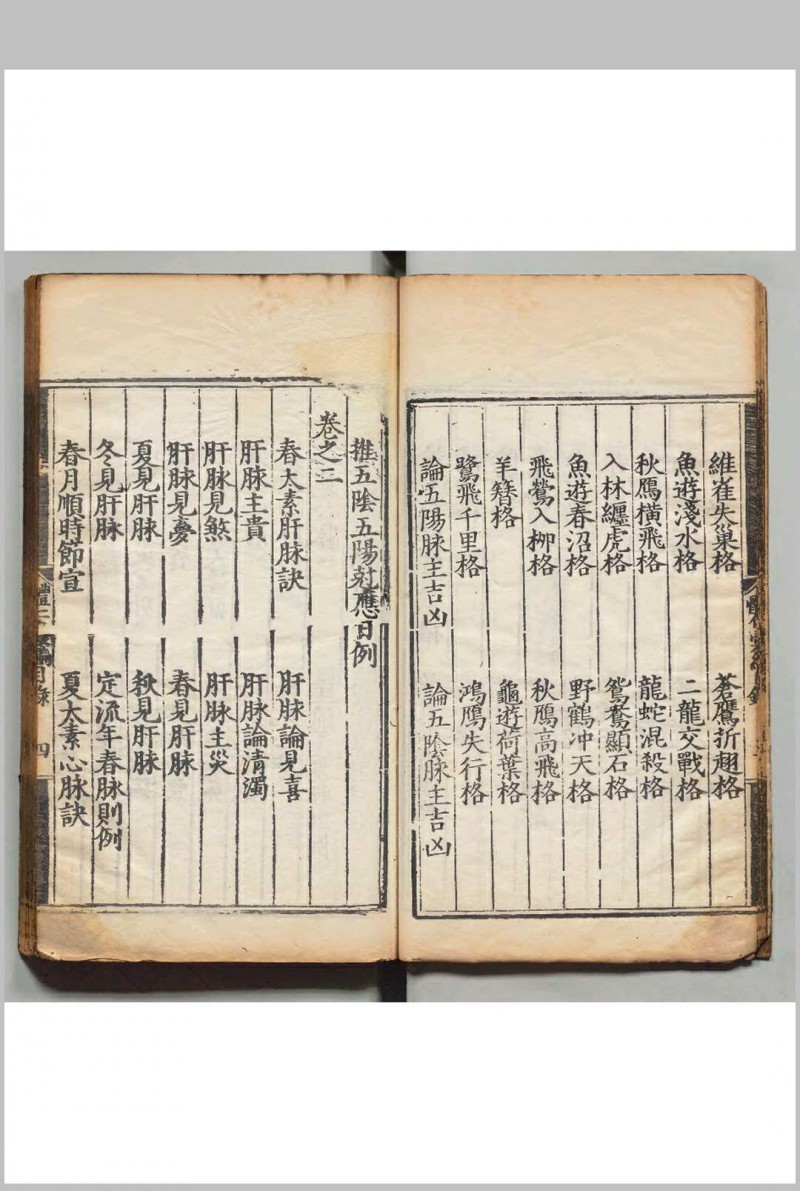 維雀失巢格　蒼鷹折翅格
魚遊淺水格　二龍交戰格
秋鴈橫飛格　龍蛇混殺格
入林纒虎格　鴛鴦顯石格
魚遊春沼格　野鶴冲天格
飛鶯入柳格　秋鴈高飛格
羊簪格　龜遊荷葉格
鷺飛千里格　鴻鴈失行格
論五陽脉主吉凶　論五陰脉主吉凶
推五陰五陽尅應日例
卷之二
春太素肝脉訣　肝脉論見喜
肝脉主貴　肝脉論清濁
肝脉見煞　肝脉主災
肝脉見憂　春見肝脉
夏見肝脉　秋見肝脉
冬見肝脉　定流年春脉則例
春月順時節宣　夏太素心脉訣
目錄　四